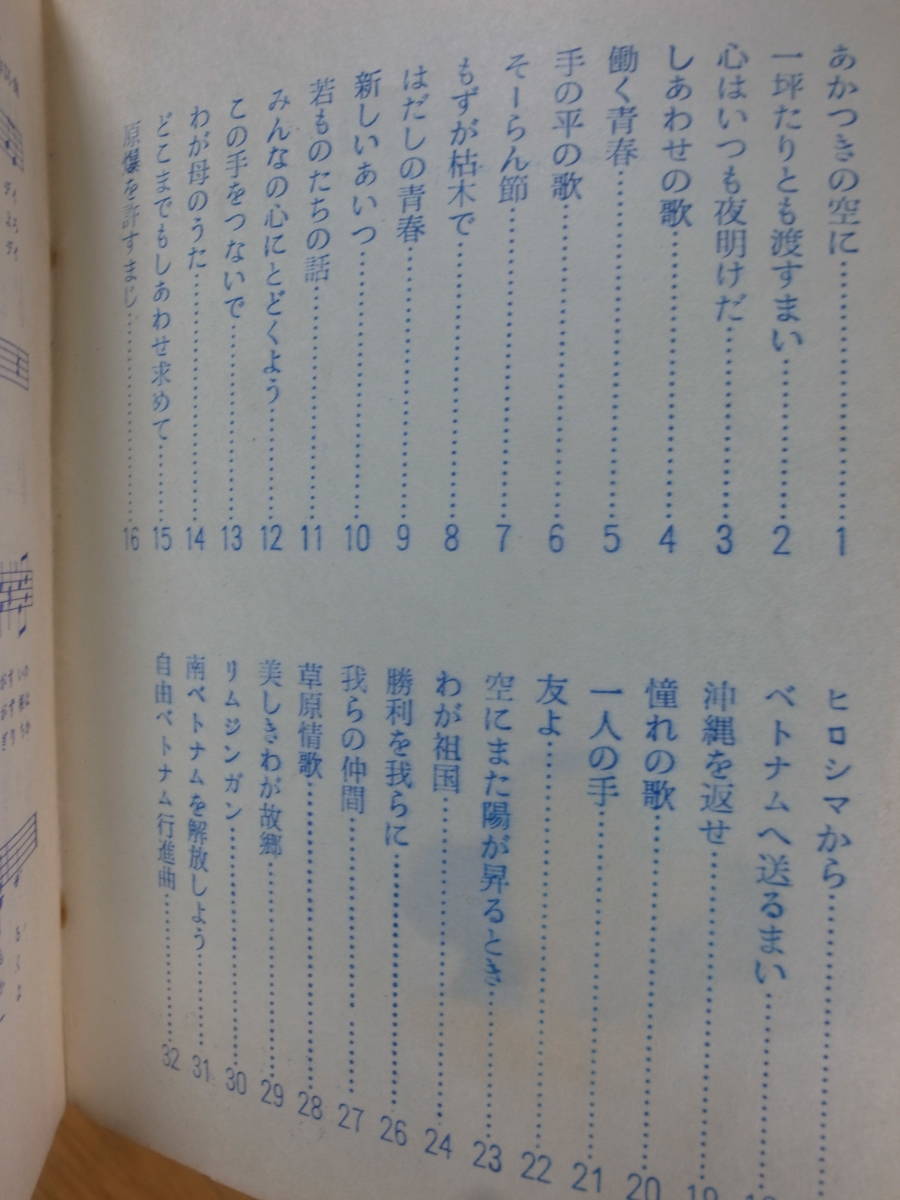 あかつきの空に……………1
一坪たりとも渡すまい……………2
心はいつも夜明けだ……………3
しあわせの歌……………4
働く青春……………5
手の平の歌……………6
そーらん節……………7
もずが枯木で……………8
はだしの青春……………9
新しいあいつ……………10
若ものたちの話……………11
みんなの心にとどくよう……………12
この手をつないで……………13
わが母のうた……………14
どこまでもしあわせ求めて……………15
原爆を許すまじ……………16
ヒロシマから……………
ベトナムへ送るまい……………
沖縄を返せ……………19
憧れの歌……………20
一人の手……………21
友よ……………22
空にまた陽が昇るとき……………23
わが祖国……………24
勝利を我らに……………26
我らの仲間……………27
草原情歌……………28
美しきわが故郷……………29
リムジンガン……………30
南ベトナムを解放しよう……………31
自由ベトナム行進曲……………32